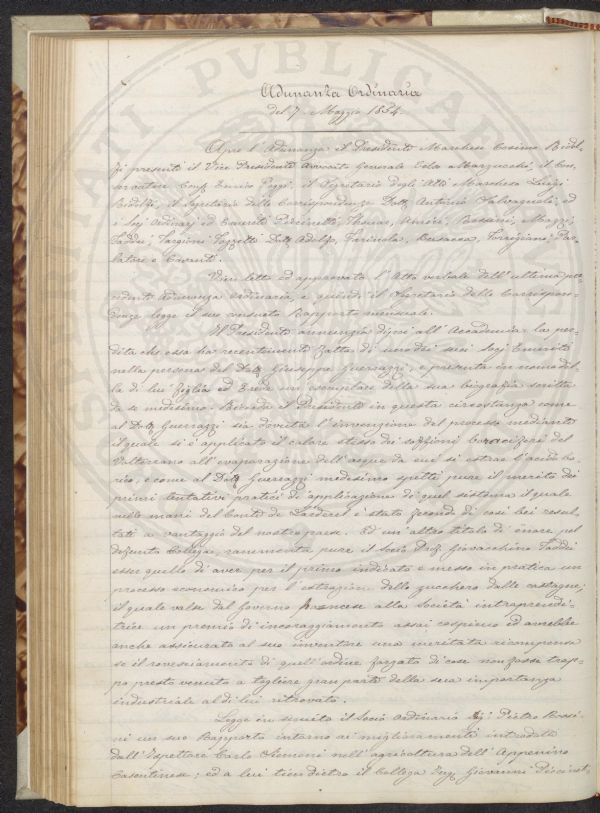 Adunanza Ordinaria
del 7 Maggio 1854.
Apre l'Adunanza il Presidente Marchese Cosimo Ridol-
fi presenti il Vice Presidente Avvocato Generale Celso Marzucchi, il Con-
servatore Conf. Enrico Poggi, il Segretario degli Atti Marchese Luigi
Ridolfi, il Segretario delle Corrispondenze Dott. Antonio Salvagnoli, ed
i Socj Ordinarj ed Emeriti Piccinetti, Thouar, Rossini, Mazzi,
Taddei, Targioni Tozzetti Dott. Adolfo, Farinola, Torrigiani, Par-
latore e
Vien letto ed approvato l'Atto verbale dell'ultima pre-
cedente adunanza ordinaria, e quindi il Segretario delle Corrispon-
denze legge il suo consueto Rapporto mensuale.
Il Presidente annunzia dipoi all'Accademia la per-
dita che essa ha recentemente fatta di uno dei suoi Socj Emeriti
nella persona del Dott. Giuseppe Guerrazzi, e presenta in nome del-
la di lui figlia ed Erede un esemplare della sua biografia scritta
da se medesimo. Ricorda il Presidente in questa circostanza come
al Dott. Guerrazzi sia dovuta l'invenzione del processo mediante
il quale si è applicato il calore stesso dei soffioni boraciferi del
Volterrano all'evaporazione dell'acque da cui si estrae l'acido bo-
rico, e come al Dott. Guerrazzi medesimo spetti pure il merito dei
primi tentativi pratici di applicazione di quel sistema il quale
nelle mani del Conte de Larderel è stato fecondo di così bei resul-
tati a vantaggio del nostro paese. Ed un'altro titolo di onore pel
defunto Collega, rammenta pure il Socio Prof. Giovacchino Taddei
esser quello di aver per il primo indicato e messo in pratica un
processo economico per l'estrazione dello zucchero dalle castagne;
il quale valse dal Governo francese alla Società intraprendi-
trice un premio di incoraggiamento assai cospicuo ed avrebbe
anche assicurato al suo inventore una meritata ricompensa
se il rovesciamento di quell'ordine forzato di cose non fosse trop-
po presto venuto a togliere gran parte della sua importanza
industriale al di lui ritrovato.
Legge in seguito il Socio Ordinario Pietro Rossi-
ni un suo Rapporto intorno ai miglioramenti introdotti
dall'Ispettore Carlo Siemoni nell'agricoltura dell'Appennino
Casentinese; ed a lui tien dietro il Collega Ing. Giovanni Piccinet-